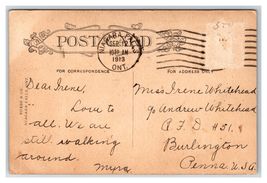 POST CARD
NIAGARA FALLS
SEP
10³⁰ AM
1913
ONT.
FOR CORRESPONDENCE
FOR ADDRESS ONLY
Dear Irene,
Love to
all. We are
still walking
around.
Myra
Miss Irene Whitehead
℅ Andrew Whitehead
R. F. D #31.
Burlington
Penna. U.S.A